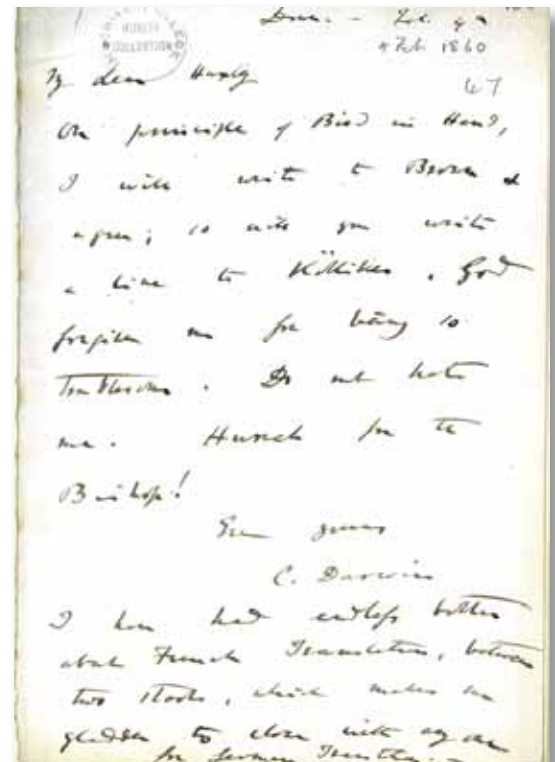 HUXLEY
COLLECTION
Down - Feb. 4th
4 Feb 1860
47
My dear Huxley
On principle of Bird in Hand,
I will write to Bronn &
agree; so will you write
a line to Kölliker. God
forgive me for being so
troublesome. Do not hate
me. Hurrah for the
Bishop!
Ever yours
C. Darwin
I have had endless bother
about French Translation, between
two stools, which makes me
gladder to close with anyone
for German Translation.—